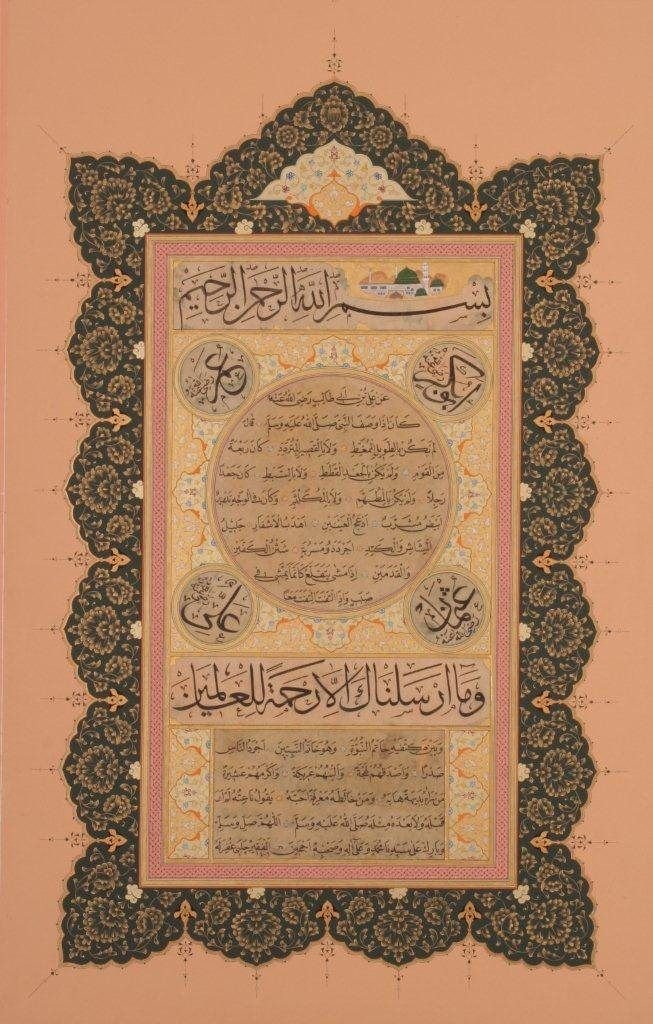 بسم الله الرحمن الرحيم
ابو بكر رضي الله عنه
عمر رضي الله عنه
عن علي بن ابي طالب رضي الله عنه
كان اذا وصف النبي صلى الله عليه وسلم قال
لم يكن بالطويل الممغط ولا بالقصير المتردد كان ربعة
من القوم ولم يكن بالجعد القطط ولا بالسبط كان جعدا
رجلا ولم يكن بالمطهم ولا بالمكلثم وكان في الوجه تدوير
ابيض مشرب ادعج العينين اهدب الاشفار جليل
المشاش والكتد اجرد ذو مسربة شثن الكفين
والقدمين اذا مشى يتقلع كانما يمشي في
صبب واذا التفت التفت معا
عثمان رضي الله عنه
علي رضي الله عنه
وما ارسلناك الا رحمة للعالمين
وبين كتفيه خاتم النبوة وهو خاتم النبيين اجود الناس
صدرا واصدقهم لهجة والينهم عريكة واكرمهم عشيرة
من رآه بديهة هابه ومن خالطه معرفة احبه يقول ناعته لم ار
قبله ولا بعده مثله صلى الله عليه وسلم اللهم صل وسلم
وبارك على سيدنا محمد وعلى آله وصحبه اجمعين الفقير غفر له